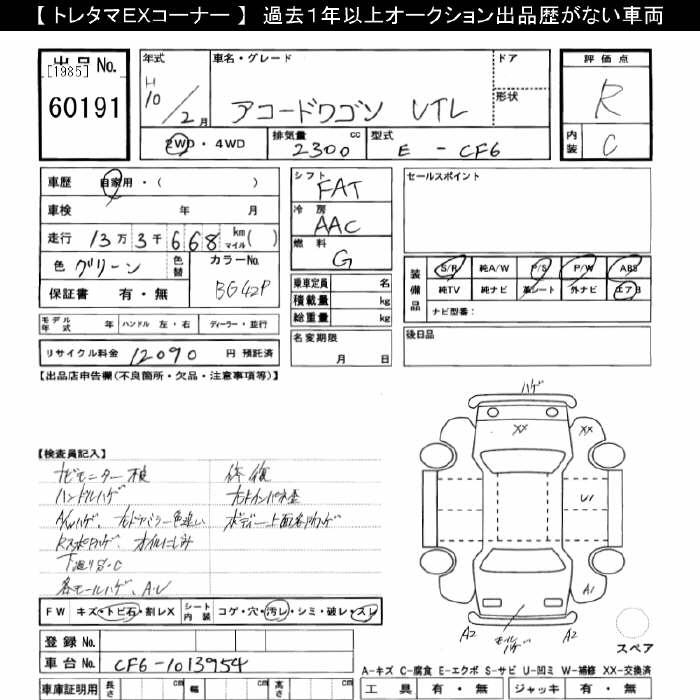 【 トレタマEXコーナー 】 過去1年以上オークション出品歴がない車両
出品 No.
[1985]
60191
年式
H
10/2月
車名・グレード
アコードワゴン VTL
ドア
形状
評価点
R
内装
C
2WD・4WD
排気量 cc
2300
型式
E - CF6
車歴 自家用・( )
車検 年 月
走行 13万3千668 km マイル( )
色 グリーン 色替
カラーNo.
BG42P
保証書 有・無
シフト
FAT
冷房
AAC
燃料
G
乗車定員 名
積載量 kg
総重量 kg
名変期限
月 日
セールスポイント
装備品
S/R 純A/W P/S P/W ABS
純TV 純ナビ 革シート 外ナビ エアB
ナビ型番：
後日品
モデル年式 年 ハンドル 左・右 ディーラー・並行
リサイクル料金 12090 円 預託済
【出品店申告欄(不良箇所・欠品・注意事項等)】
【検査員記入】
ナビモニター
ハンドルハゲ
A/Wハゲ、右ドアミラー色違い
オイルにじみ
下廻りS・C
各モールハゲ、A・U
修復
右
ボディー上面
FW キズ・トビ石・割レX シート内装 コゲ・穴・汚レ・シミ・破レ・スレ
登録 No.
車台 No. CF6-1013954
車庫証明用 長さ cm 幅 cm 高さ cm
ハゲ
XX
XX
U1
A1
A2
モールハゲ
A2
スペア
A-キズ C-腐食 E-エクボ S-サビ U-凹ミ W-補修 XX-交換済
工具 有・無 ジャッキ 有・無